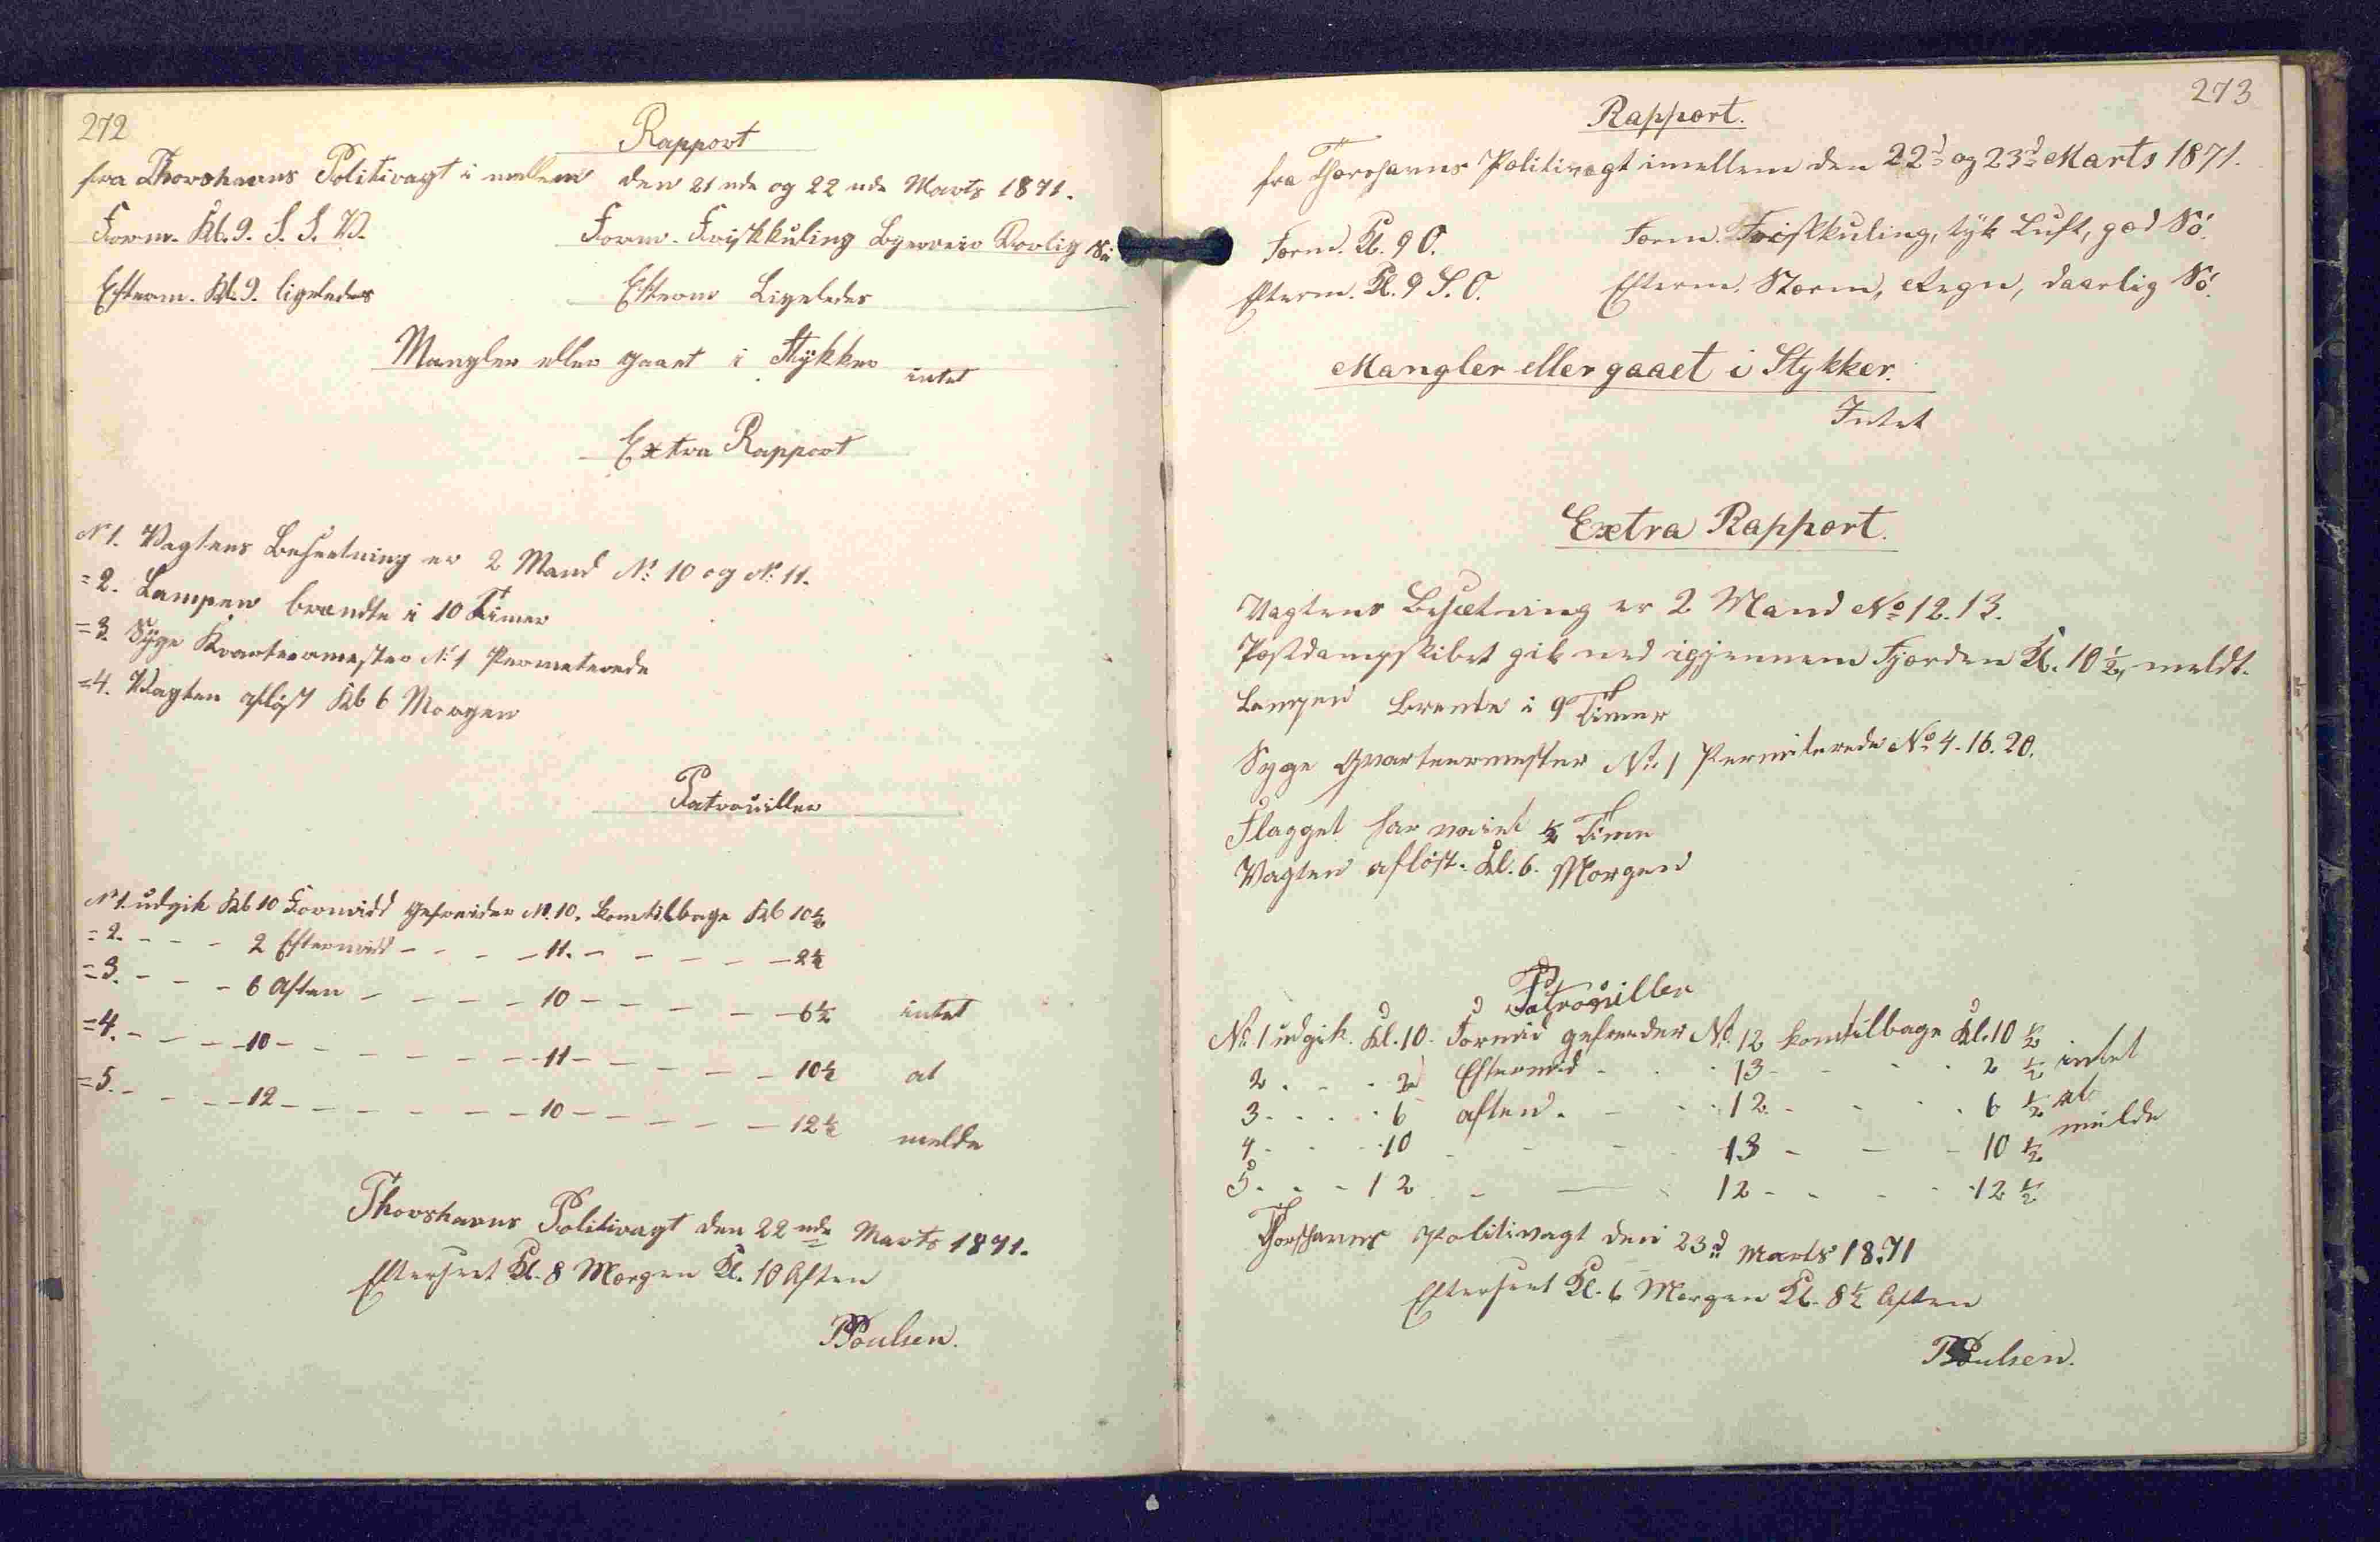 272
Rapport
fra Thorshavns Politivagt i mellem den 21 nde og 22 nde Marts 1871.
Form. Kl. 9. S. S. V. Form. Friskkuling Bygeveir Rolig Sö
Efterm. Kl. 9. ligeledes Efterm Ligeledes
Mangler eller gaaet i Stykker intet
Extra Rapport
N 1. Vagtens Besætning er 2 Mand No 10 og No 11.
= 2. Lampen brændte i 10 Timer
= 3. Syge Kvarteermester No 1 Permeterede
= 4. Vagten aflöst Kl 6 Morgen
Patrouiller
N 1. udgik Kl 10 Formidd Gefreider No. 10. komtilbage Kl 10 1/2
= 2. - - - 2 Eftermidd - - - - 11. - - - - - 2 1/2
= 3. - - - 6 Aften - - - - 10 - - - - - 6 1/2 intet
= 4. - - - 10 - - - - - - 11 - - - - - 10 1/2 at
= 5. - - - 12 - - - - - - 10 - - - - - 12 1/2 melde
Thorshavns Politivagt den 22 nde Marts 1871.
Efterseet Kl. 8 Morgen Kl. 10 Aften
PPoulsen.
273
Rapport.
fra Thorshavns Politivagt imellem den 22d og 23d Marts 1871.
Form. Kl. 9 O. Form. Friskkuling, tyk Luft, god Sö.
Efterm. Kl. 9 S. O. Efterm. Storm, Regn, daarlig Sö.
Mangler eller gaaet i Stykker.
Intet
Extra Rapport.
Vagtens Besætning er 2 Mand No 12. 13.
Postdampskibet gik ned igjennem Fjorden Kl. 10 1/2, meldt.
Lampen Brente i 9 Timer
Syge Qvarteermester No. 1 Permiterede No 4. 16. 20.
Flaget har vaiet 1/2 Time
Vagten aflöst. Kl. 6. Morgen
Patrouiller
No 1 udgik. Kl. 10. Formid gefreider No. 12 komtilbage Kl. 10 1/2
2 . - . 2 Eftermid - . . 13 - - . . 2 1/2 intet
3 - . . . 6 aften . - . . 12. - . . . 6 1/2 at
4 - . - . 10 - - - . 13 - - - 10 1/2 melde
5 . - - 12 - — . 12 - . . - . 12 1/2
Thorshavns Politivagt den 23d Marts 1871
Efterseet Kl. 6 Morgen Kl. 8 1/2 Aften
PPoulsen.